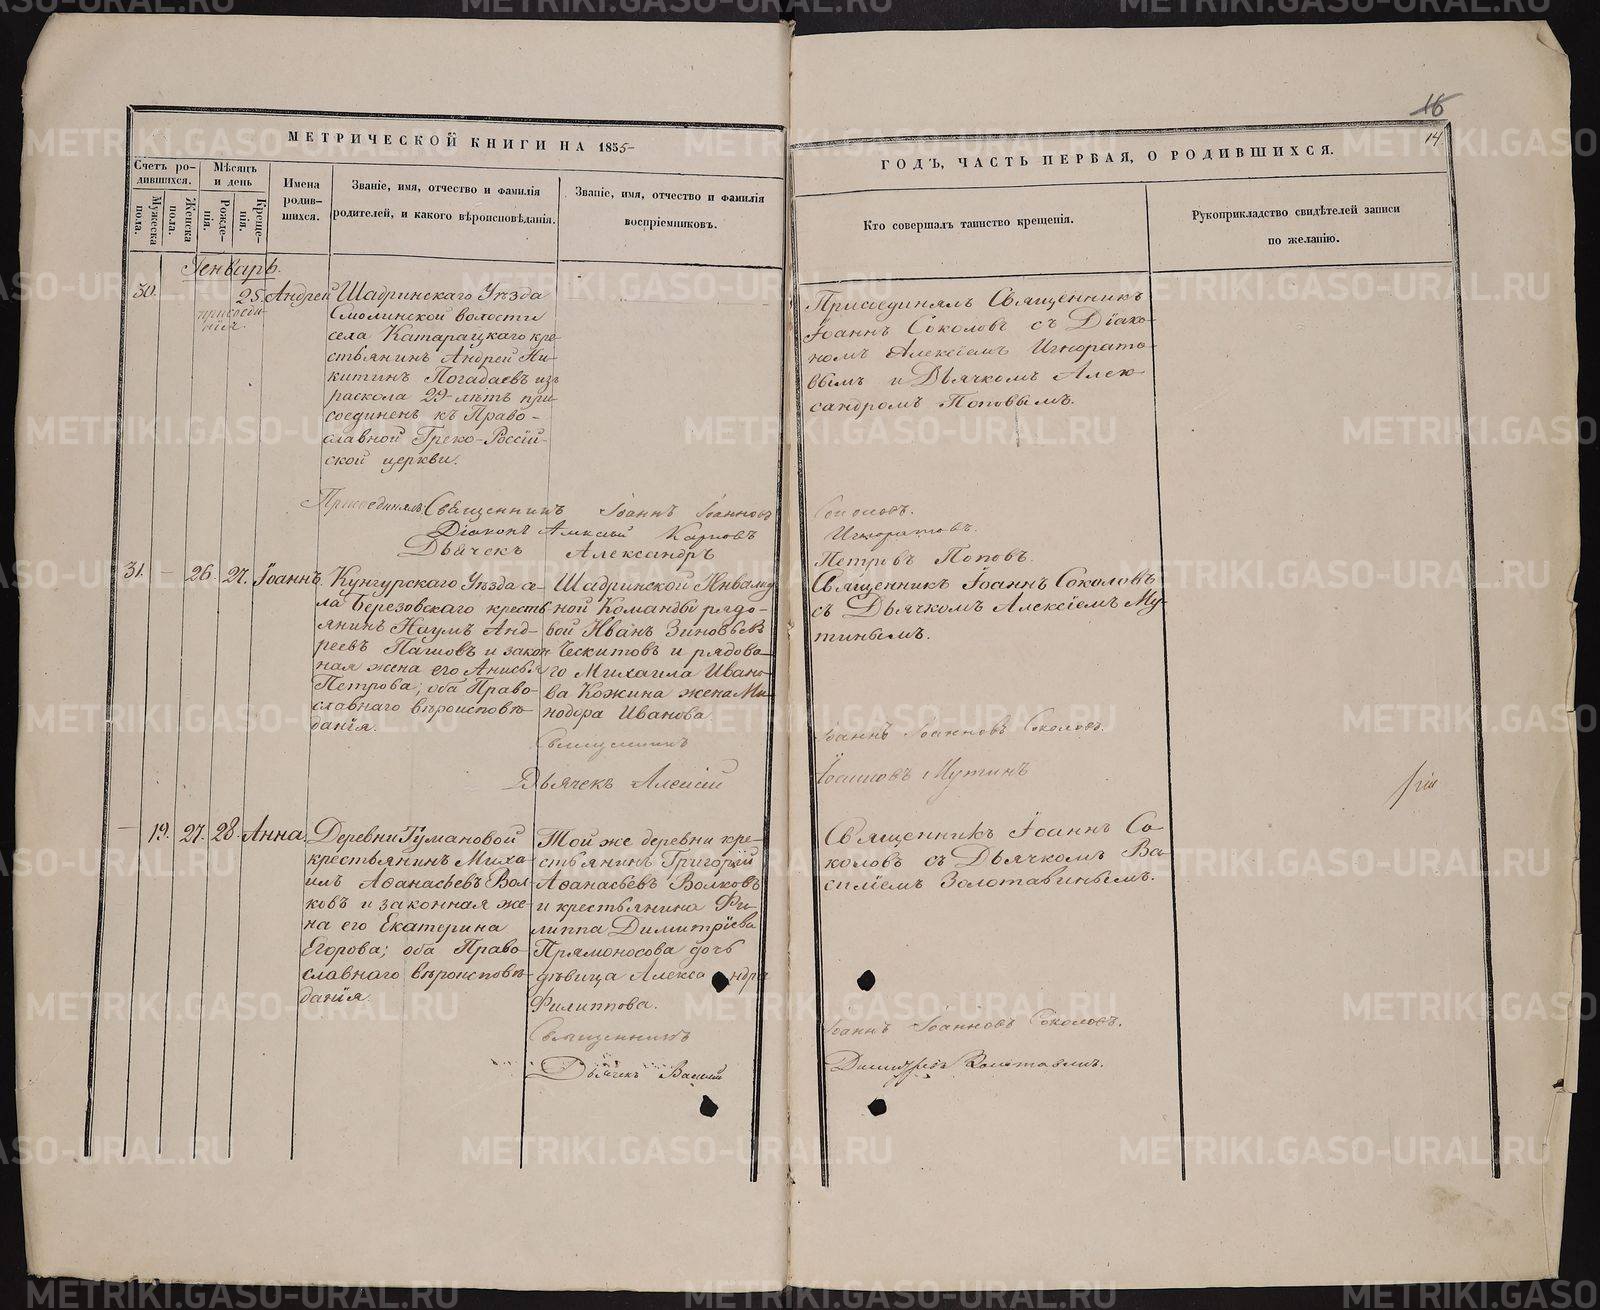 16
14
МЕТРИЧЕСКОЙ КНИГИ НА 1855
ГОДЪ, ЧАСТЬ ПЕРВАЯ, О РОДИВШИХСЯ.
Счетъ ро-
дившихся.
Мѣсяцъ
и день
Мужеска
пола.
Женска
пола.
Рожде-
нія.
Креще-
нія.
Имена
родив-
шихся.
Званіе, имя, отчество и фамилія
родителей, и какого вѣроисповѣданія.
Званіе, имя, отчество и фамилія
воспріемниковъ.
Кто совершалъ таинство крещенія.
Рукоприкладство свидѣтелей записи
по желанію.
Генварь.
30.
25.
присоеди-
нія.
Андрей
Шадринскаго Уѣзда
Смолинской волости
села Катарацкаго кре-
стьянинъ Андрей Ни-
китинъ Погадаевъ изъ
раскола 29 лѣтъ при-
соединенъ къ Право-
славной Греко-Россій-
ской церкви.
Присоединялъ Священникъ
Іоаннъ Соколовъ съ Діако-
номъ Алексіемъ Игнорато-
вымъ и Дьячкомъ Алек-
сандромъ Поповымъ.
Присоединялъ Священникъ Іоаннъ Іоанновъ Соколовъ.
Діаконъ Алексѣй Карповъ Игноратовъ.
Дьячекъ Александръ Петровъ Поповъ.
31. - 26. 27. Іоаннъ.
Кунгурскаго Уѣзда се-
ла Березовскаго кресть-
янинъ Наумъ Анд-
реевъ Пашовъ и закон-
ная жена его Анисья
Петрова; оба Право-
славнаго вѣроисповѣ-
данія.
Шадринской Инвалид-
ной Команды рядо-
вой Иванъ Зиновьевъ
Ческитовъ и рядова-
го Михаила Ивано-
ва Кожина жена Ми-
нодора Иванова.
Священникъ Іоаннъ Соколовъ
съ Дьячкомъ Алексіемъ Му-
тинымъ.
Священникъ Іоаннъ Іоанновъ Соколовъ.
Дьячекъ Алексій Іоанновъ Мутинъ
- 19. 27. 28. Анна.
Деревни Тумановой
крестьянинъ Миха-
илъ Аѳанасьевъ Вол-
ковъ и законная же-
на его Екатерина
Егорова; оба Право-
славнаго вѣроисповѣ-
данія.
Той же деревни кре-
стьянинъ Григорій
Аѳанасьевъ Волковъ
и крестьянина Фи-
липпа Димитріева
Прямоносова дочь
дѣвица Александра
Филиппова.
Священникъ Іоаннъ Со-
коловъ съ Дьячкомъ Ва-
силіемъ Золотавинымъ.
Священникъ Іоаннъ Іоанновъ Соколовъ.
Дьячекъ Василій
METRIKI.GASO-URAL.RU